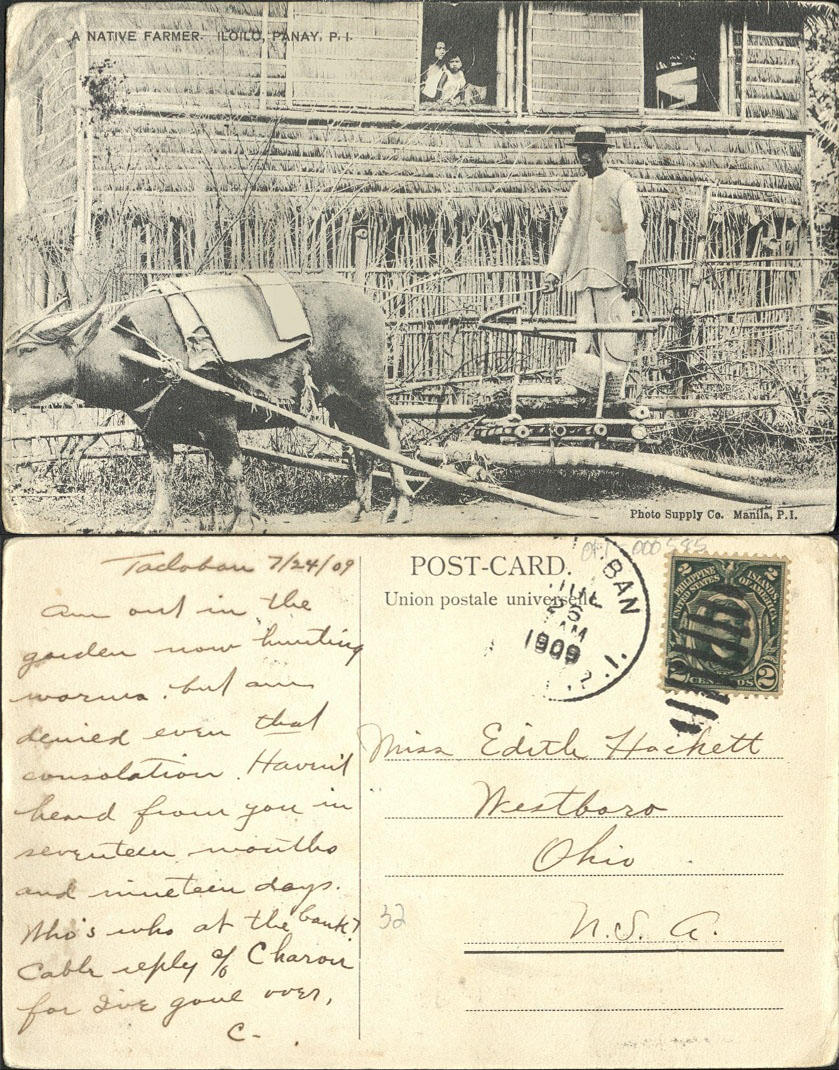 A NATIVE FARMER- ILOILO, PANAY, P. I.
Photo Supply Co. Manila, P.I.
Tacloban 7/24/09
am out in the
garden now hunting
worms. but am
denied even that
consolation. Haven't
heard from you in
seventeen months
and nineteen days.
Who's who at the bank?
Cable reply c/o Charon
for I've gone over,
C-.
POST-CARD.
Union postale universelle.
000585
BAN
JUL
25
AM
1909
P.I.
PHILIPPINE ISLANDS
UNITED STATES OF AMERICA
2 CENTAVOS 2
Miss Edith Hackett
Westboro
Ohio
U.S.A.
32